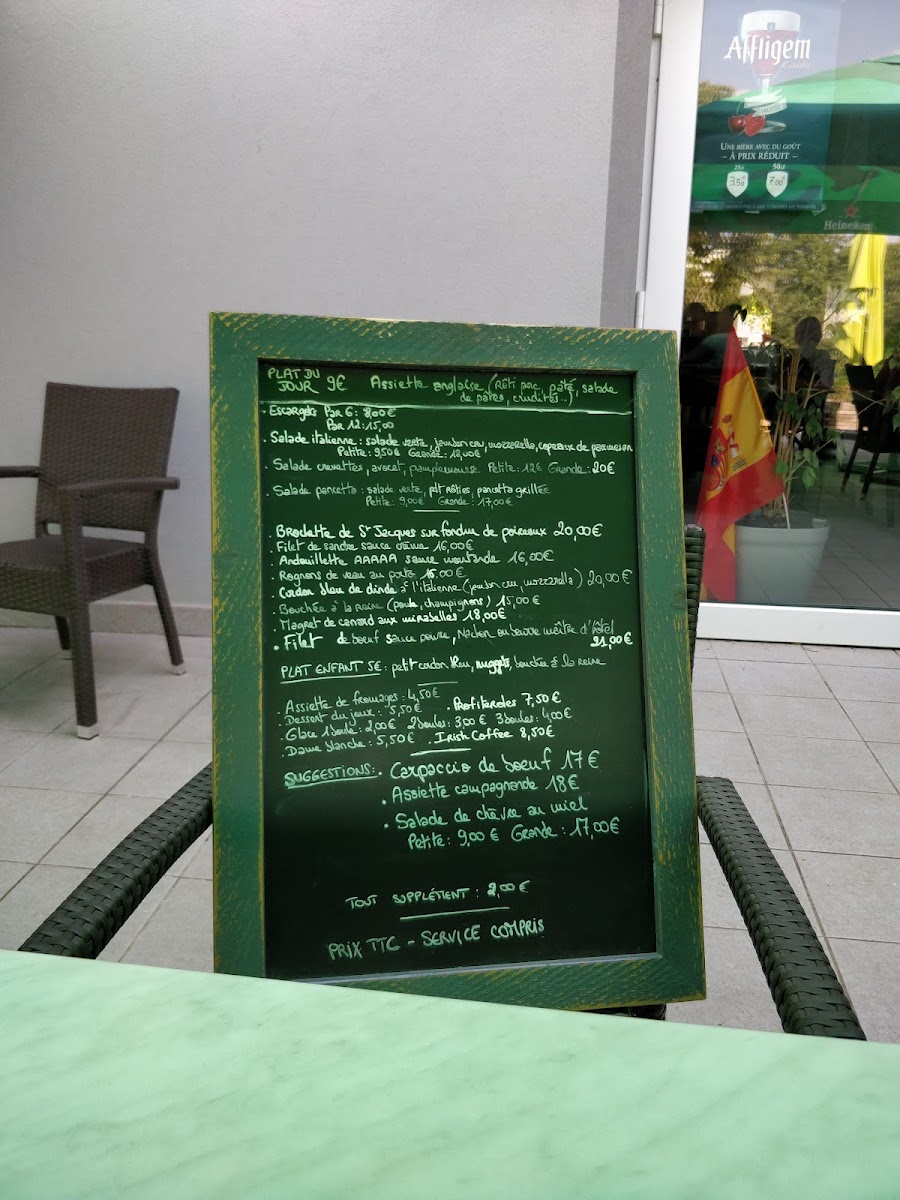 Affligem
UNE BIÈRE AVEC DU GOÛT
– À PRIX RÉDUIT –
25cl 50cl
3.50 7.00
Heineken
PLAT DU JOUR 9€ Assiette anglaise (Rôti porc, pâté, salade
de pâtes, crudités..)
. Escargots Par 6 : 8,00€
Par 12 : 15,00
. Salade italienne : salade verte, jambon cru, mozzarella, copeaux de parmesan
Petite : 9,50€ Grande :
. Salade crevettes, avocat, pamplemousse Petite : 12€ Grande : 20€
. Salade pancetta : salade verte, pancetta grillée
Petite : 9,00€ Grande : 17,00€
. Brochette de St Jacques sur fondue de poireaux 20,00€
. Filet de sandre sauce crème 16,00€
. Andouillette AAAAA sauce moutarde 16,00€
. Rognons de veau au porto 16.00€
. Cordon bleu de dinde à l'italienne (jambon cru, mozzarella) 20,00€
. Bouchée à la reine (poule, champignons) 15,00€
. Magret de canard aux mirabelles 18,00€
. Filet de boeuf sauce poivre, ou beurre maître d'hôtel
21,00€
PLAT ENFANT 5€ : petit cordon bleu, nuggets, bouchée à la reine
. Assiette de fromages : 4,50€
. Dessert du jour : 5,50€ . Profiteroles 7,50€
. Glace 1 boule : 2,00€ 2 boules : 3,00€ 3 boules : 4,00€
. Dame blanche : 5,50€ . Irish Coffee 8,50€
SUGGESTIONS : . Carpaccio de boeuf 17€
. Assiette campagnarde 18€
. Salade de chèvre au miel
Petite : 9,00€ Grande : 17,00€
TOUT SUPPLÉMENT : 2,00€
PRIX TTC - SERVICE COMPRIS